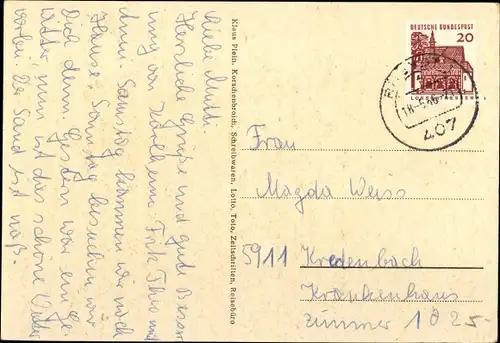 Liebe Mutti.
Herzliche Grüße und gute Besser
ung von
Samstag kommen wir nach
Hause. Sonntag besuchen wir
Dich dann. Gestern war ein Ge
witter nun ist das schöne Wetter
vorbei. Der Sand ist naß.
Klaus Plein, Korschenbroich, Schreibwaren, Lotto, Toto, Zeitschriften, Reisebüro
DEUTSCHE BUNDESPOST
20
407
Frau
Magda Weiss
5911 Kredenbach
Krankenhaus
Zimmer 1825